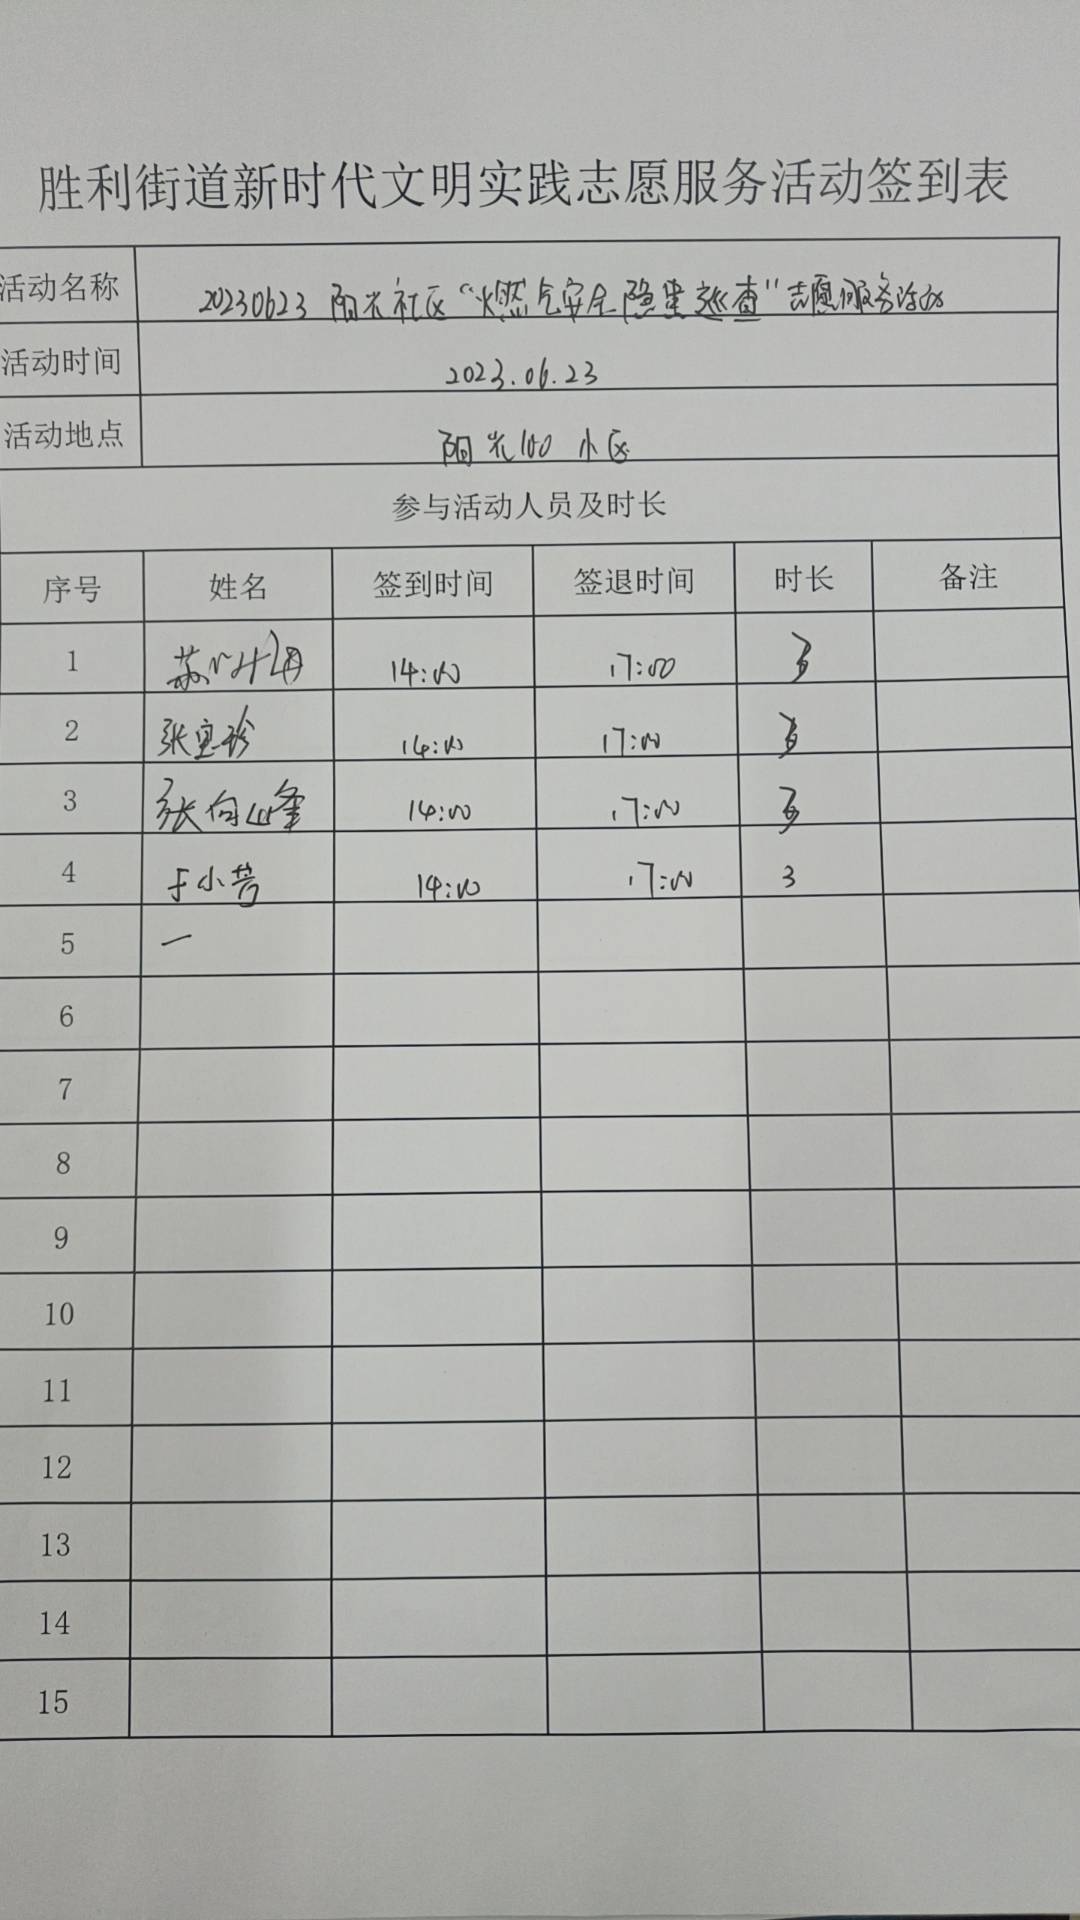 胜利街道新时代文明实践志愿服务活动签到表
活动名称 20230623 阳光社区“燃气安全隐患巡查”志愿服务活动
活动时间 2023.06.23
活动地点 阳光100 小区
参与活动人员及时长
序号 姓名 签到时间 签退时间 时长 备注
1 苏 14:00 17:00 3
2 张宝珍 14:00 17:00 3
3 张向峰 14:00 17:00 3
4 于小 14:00 17:00 3
5 一
6
7
8
9
10
11
12
13
14
15